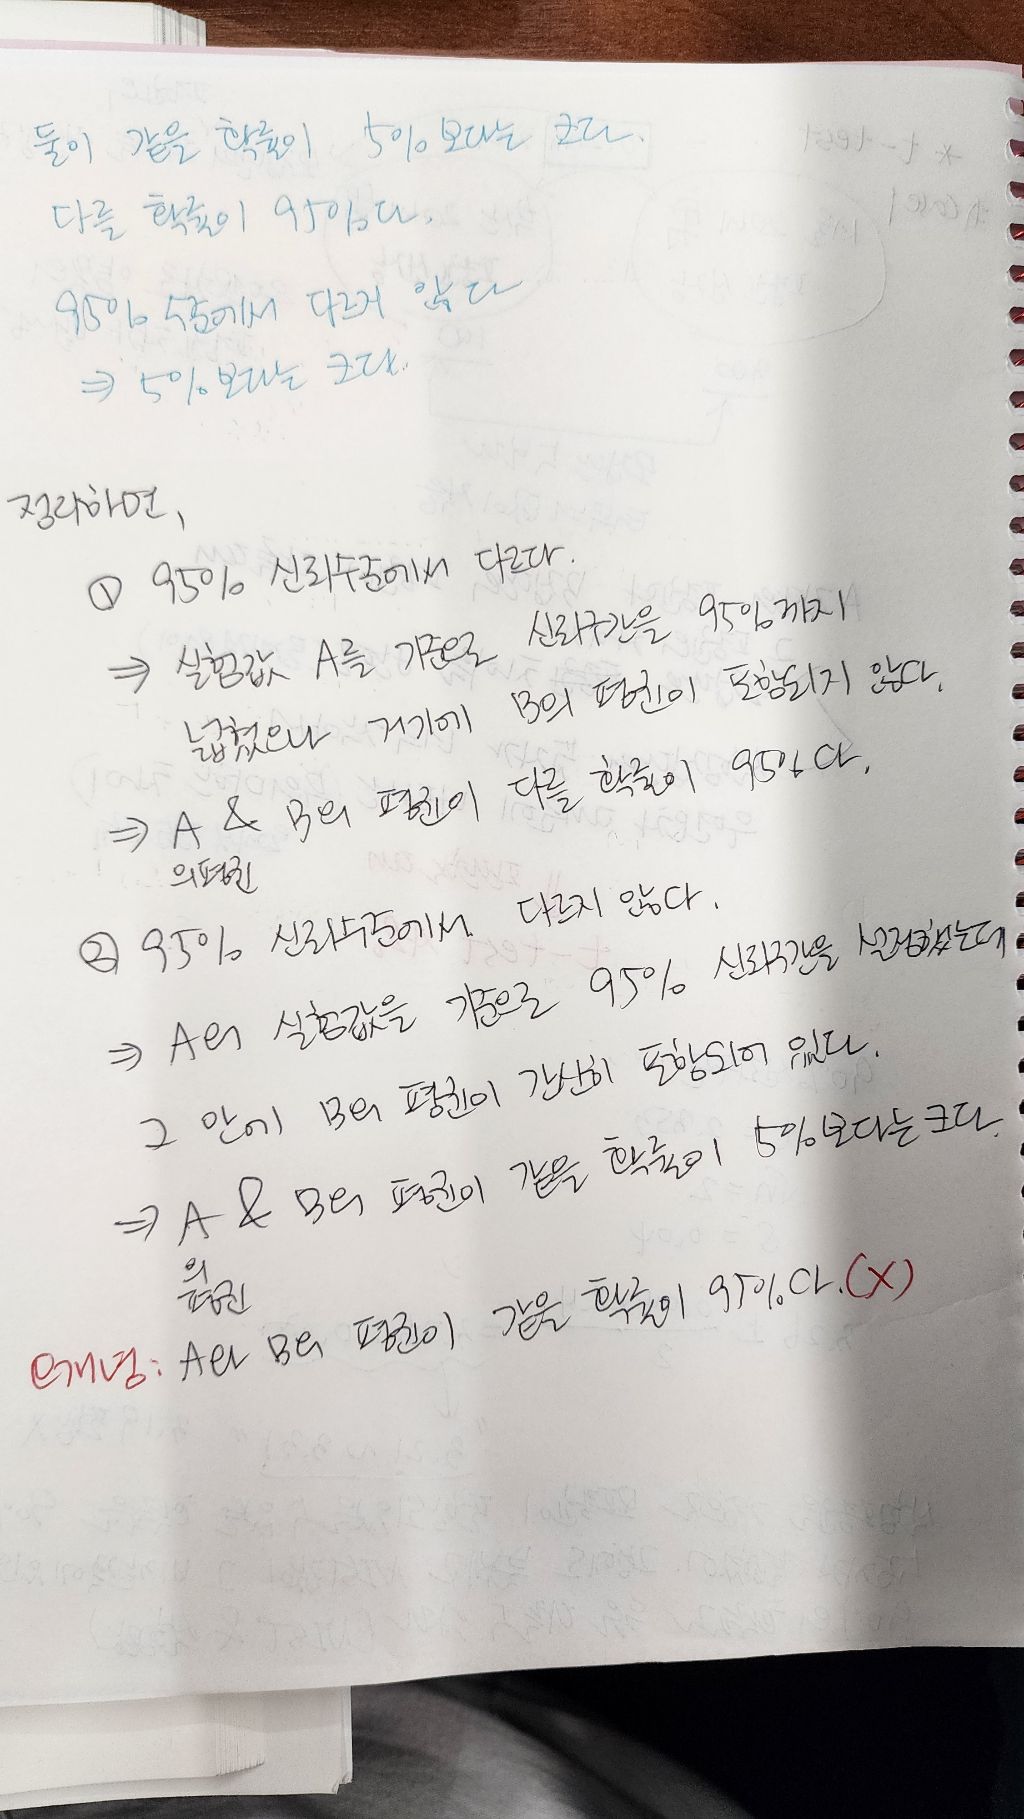 둘이 같을 확률이 5%보다는 크다.
다를 확률이 95%다.
95% 수준에서 다르지 않다
⇒ 5%보다는 크다.
정리하면,
① 95% 신뢰수준에서 다르다.
⇒ 실험값 A를 기준으로 신뢰구간을 95%까지
넓혔으나 거기에 B의 평균이 포함되지 않다.
⇒ A & B의 평균이 다를 확률이 95%다.
의평균
② 95% 신뢰수준에서 다르지 않다.
⇒ A의 실험값을 기준으로 95% 신뢰구간을 설정했는데
그 안에 B의 평균이 간신히 포함되어 있다.
⇒ A & B의 평균이 같을 확률이 5%보다는 크다.
의
평균
오개념: A와 B의 평균이 같을 확률이 95%다.(X)